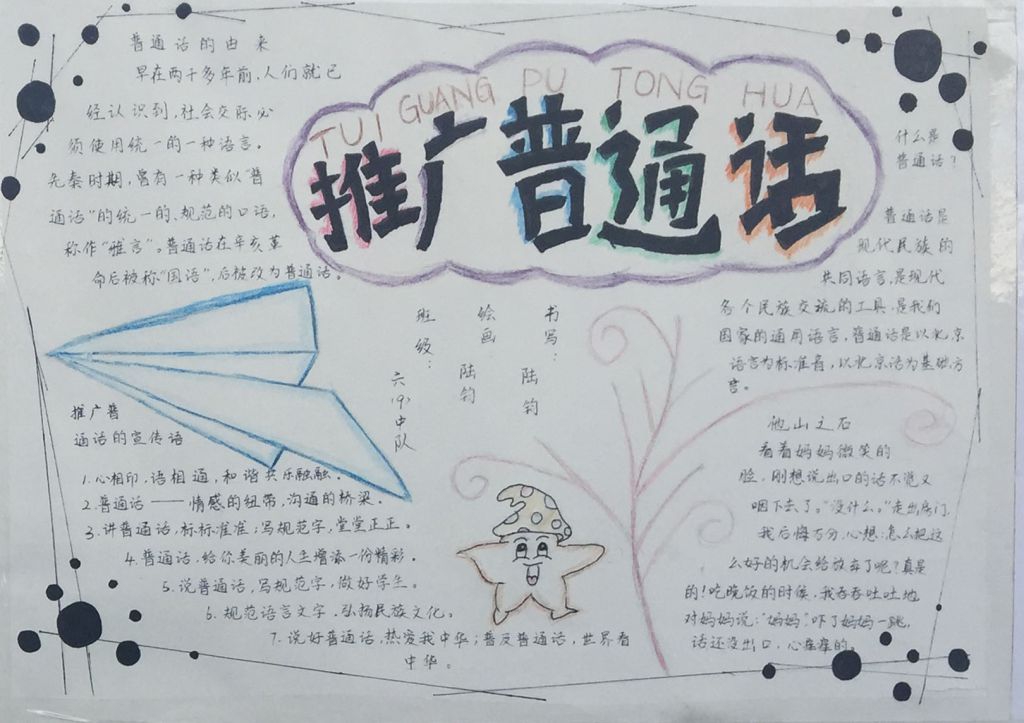 普通话的由来
早在两千多年前,人们就已
经认识到,社会交际必
须使用统一的一种语言。
先秦时期,曾有一种类似"普
通话"的统一的、规范的口语,
称作"雅言"。普通话在辛亥革
命后被称"国语",后被改为普通话。
TUI GUANG PU TONG HUA
推广普通话
什么是
普通话?
普通话是
现代民族的
共同语言,是现代
各个民族交流的工具,是我们
国家的通用语言,普通话是以北京
语言为标准音,以北京话为基础方
言。
班级:六(9)中队
绘画 陆钧
书写:陆钧
推广普
通话的宣传语
1.心相印,语相通,和谐共乐融融。
2.普通话——情感的纽带,沟通的桥梁。
3.讲普通话,标标准准;写规范字,堂堂正正。
4.普通话,给你美丽的人生增添一份精彩。
5.说普通话,写规范字,做好学生。
6.规范语言文字,弘扬民族文化。
7.说好普通话,热爱我中华;普及普通话,世界看
中华。
他山之石
看着妈妈微笑的
脸,刚想说出口的话不觉又
咽下去了。"没什么。"走出房门,
我后悔万分,心想:怎么把这
么好的机会给放弃了呢?真是
的!吃晚饭的时候,我吞吞吐吐地
对妈妈说:"妈妈"。吓了妈妈一跳,
话还没出口,心疼疼的。